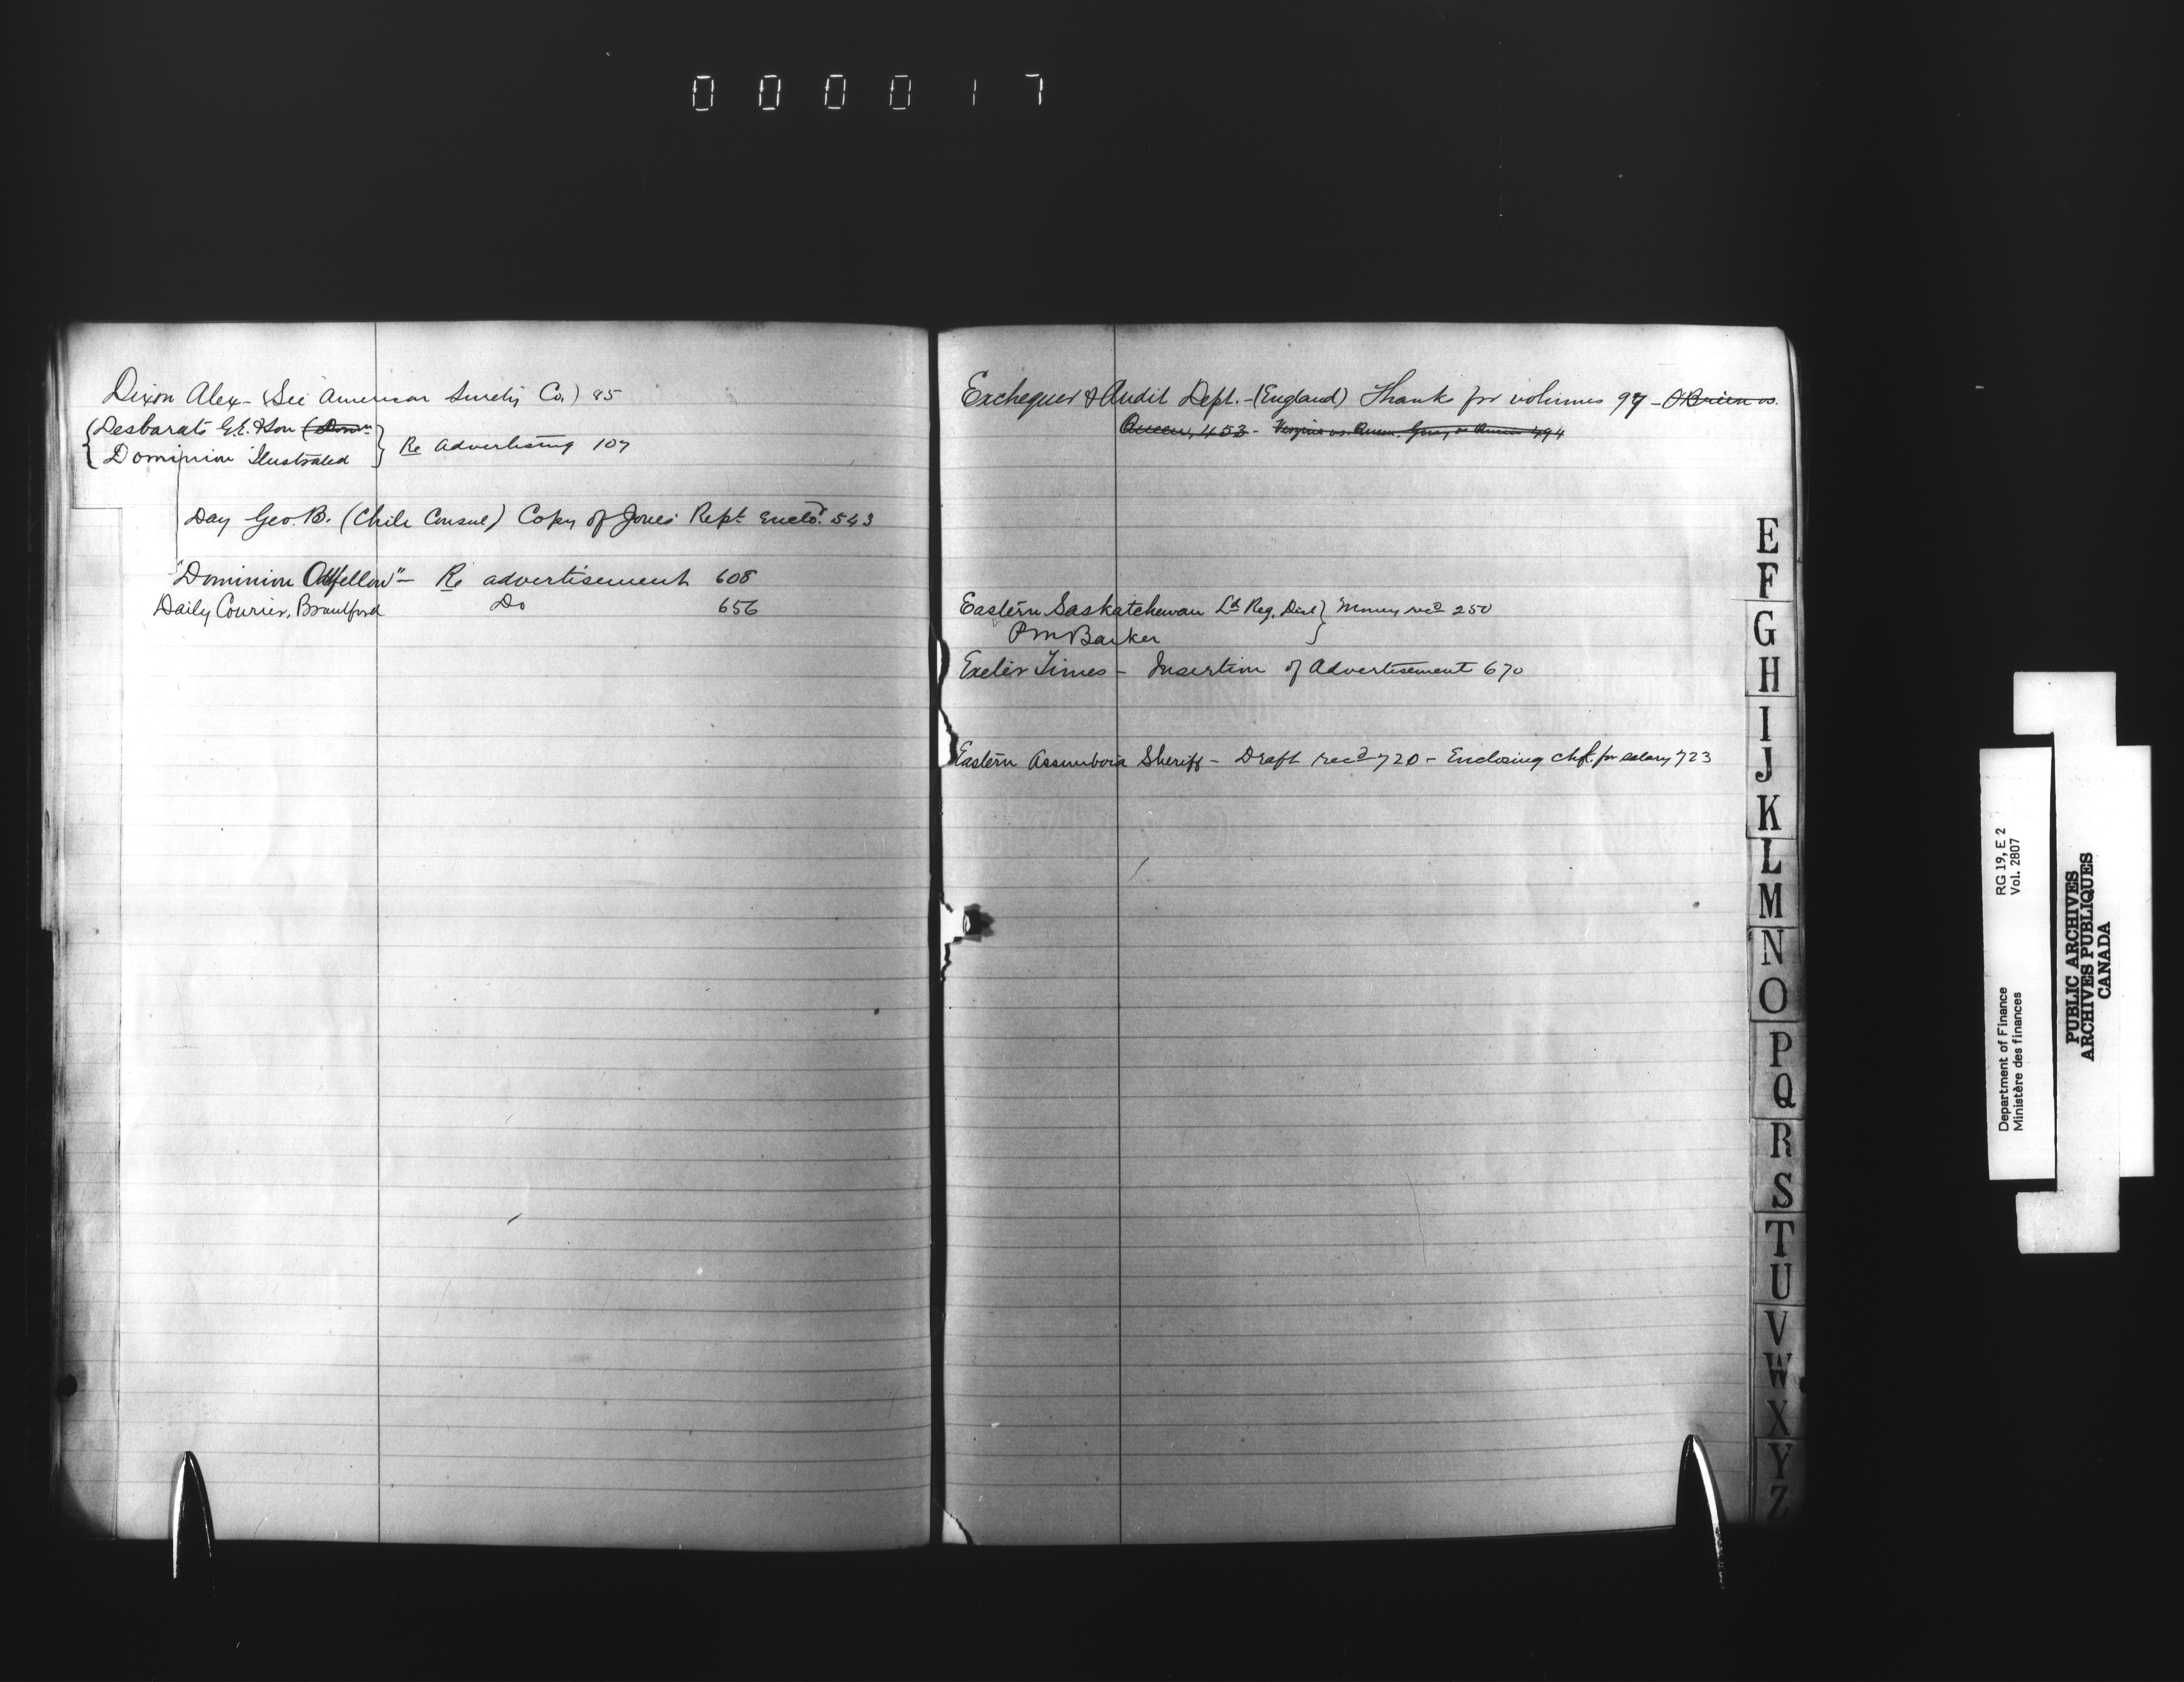 000017
Dixon Alex - (See American Surety Co.) 85
Desbarats G.E. & Son (Domn
Dominion Illustrated } Re Advertising 107
Day Geo. B. (Chile Consul) Copy of Jones Rept. Enclod. 543
"Dominion Oddfellow" - Re advertisement 608
Daily Courier, Brantford Do 656
Exchequer & Audit Dept. - (England) Thanks for volumes 97 - O'Brien vs.
Queen, 453 - vs. Queen. vs Queen 494
Eastern Saskatchewan Ld Reg. Dist } Money recd 250
P M Barker
Exeter Times - Insertion of Advertisement 670
Eastern Assiniboia Sheriff - Draft recd 720 - Enclosing chq. for salary 723
E
F
G
H
I
J
K
L
M
N
O
P
Q
R
S
T
U
V
W
X
Y
Z
Department of Finance RG 19, E 2
Ministère des finances Vol. 2807
PUBLIC ARCHIVES
ARCHIVES PUBLIQUES
CANADA